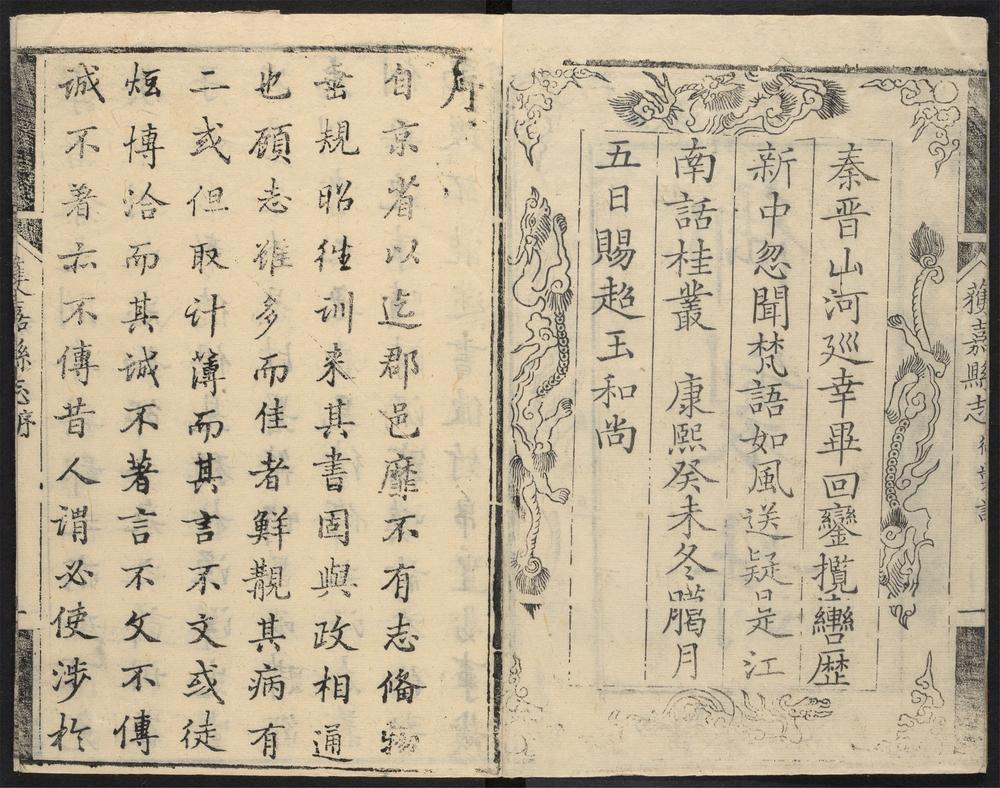 獲嘉縣志
一
秦晋山河廵幸畢回鑾攬轡歷
新中忽聞梵語如風送疑是江
南話桂叢 康熙癸未冬臘月
五日賜超玉和尚
序
自京省以迄郡邑靡不有志俻物
垂規昭徃訓来其書固與政相通
也顧志雖多而佳者鮮覯其病有
二或但取计薄而其言不文或徒
炫博洽而其诚不著言不文不傳
诚不著亦不傳昔人谓必使涉於
獲嘉縣志序
一